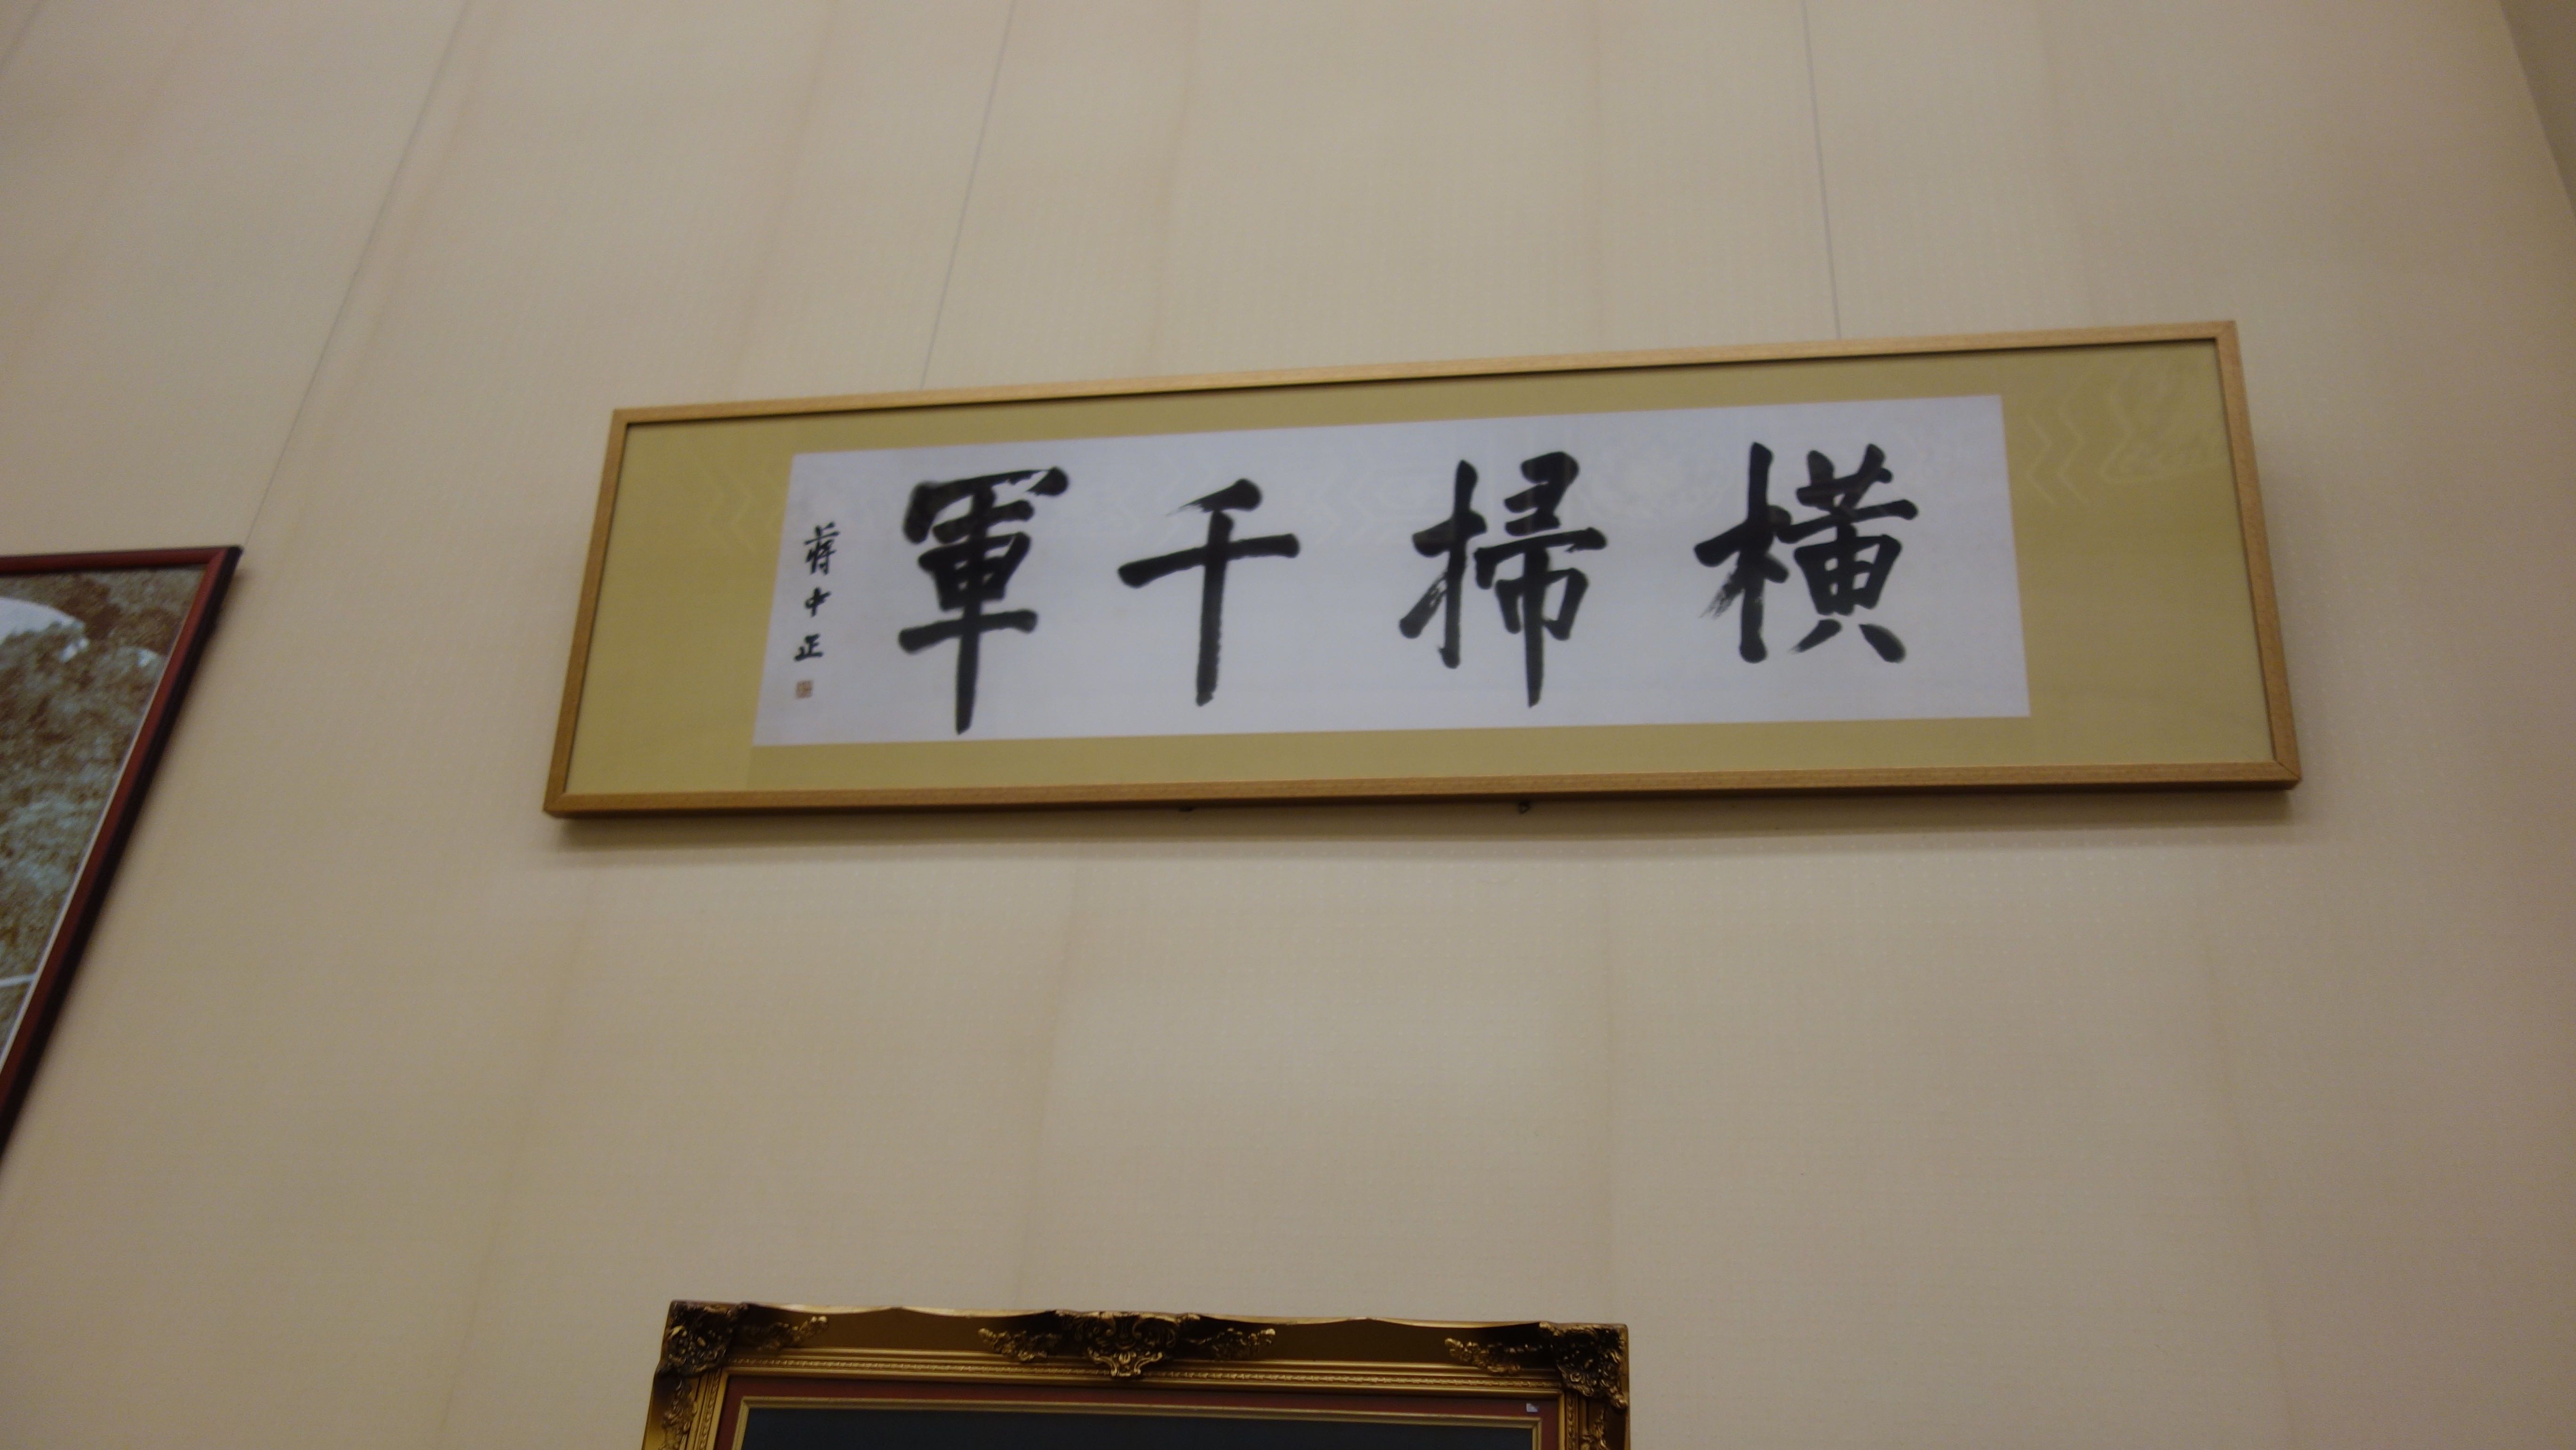 橫掃千軍
蔣中正